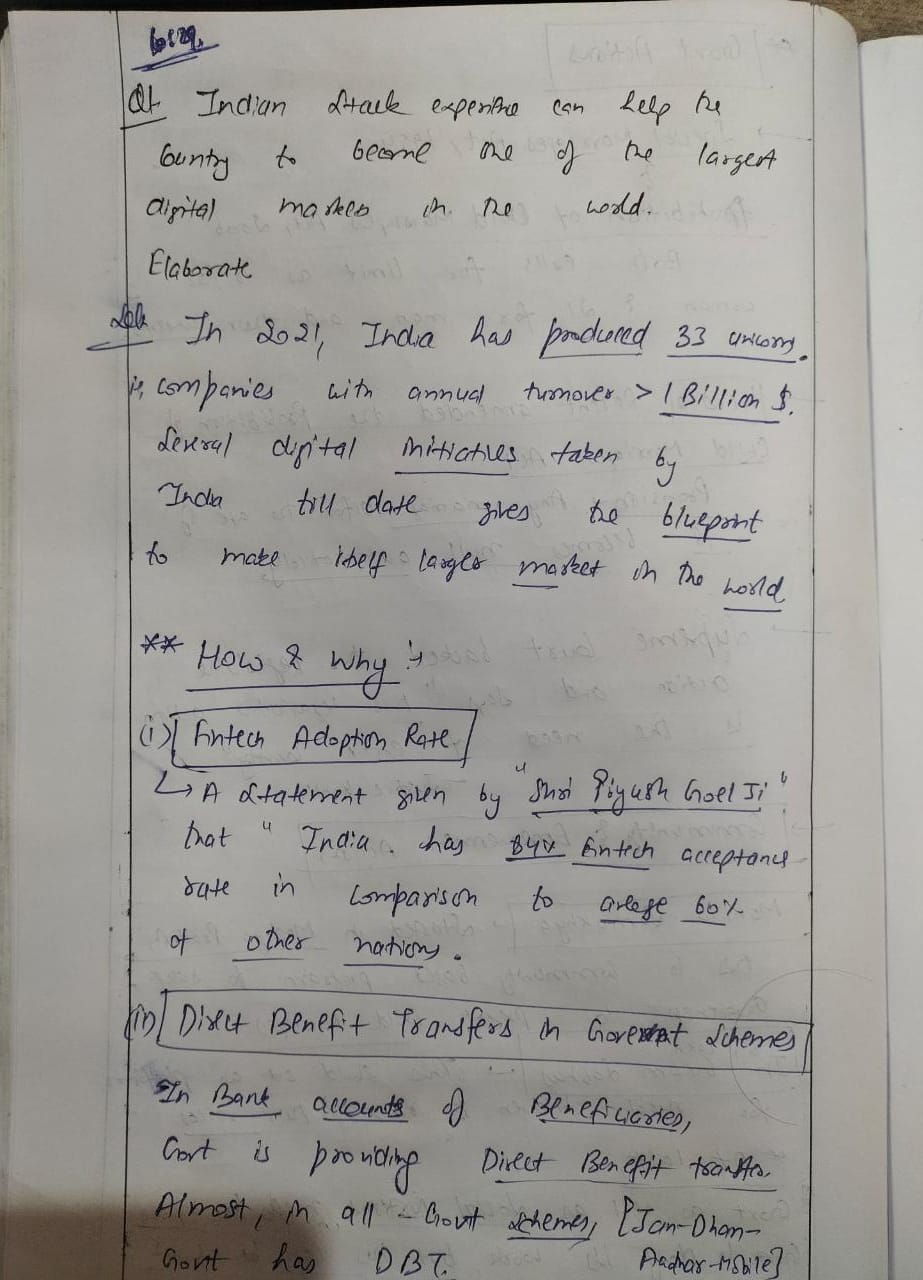 Q1 Indian Stack experience can help the
Country to become one of the largest
digital markets in the world.
Elaborate
Sol In 2021, India has produced 33 unicorns.
ie, companies with annual turnover > 1 Billion $.
Several digital initiatives taken by
India till date gives the blueprint
to make itself larger market in the world
** How & Why :→
(i) Fintech Adoption Rate
↳ A statement given by "Shri Piyush Goel Ji"
that " India has 84% fintech acceptance
rate in comparison to average 60%
of other nations.
(ii) Direct Benefit Transfers in Government Schemes
In Bank accounts of Beneficiaries,
Govt is providing Direct Benefit transfer.
Almost, in all - Govt schemes, [Jan-Dhan-
Govt has DBT. Aadhar-Mobile]